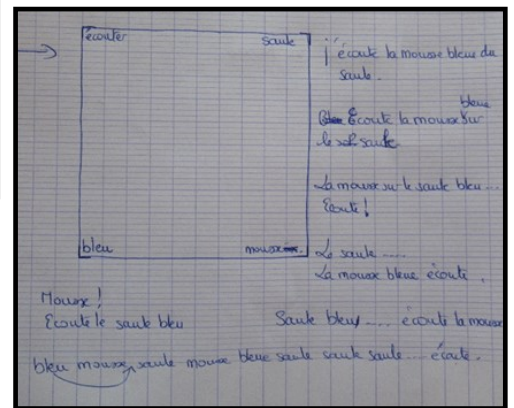 écouter saule
j'écoute la mousse bleue du
saule.
bleue
Écoute la mousse sur
le saule
La mousse sur le saule bleu...
Ecoute !
bleu mousse
Le saule .....
La mousse bleue écoute.
Mousse !
Ecoute le saule bleu
Saule bleu ..... écoute la mousse
bleu mousse saule mousse bleue saule saule saule ... écoute.